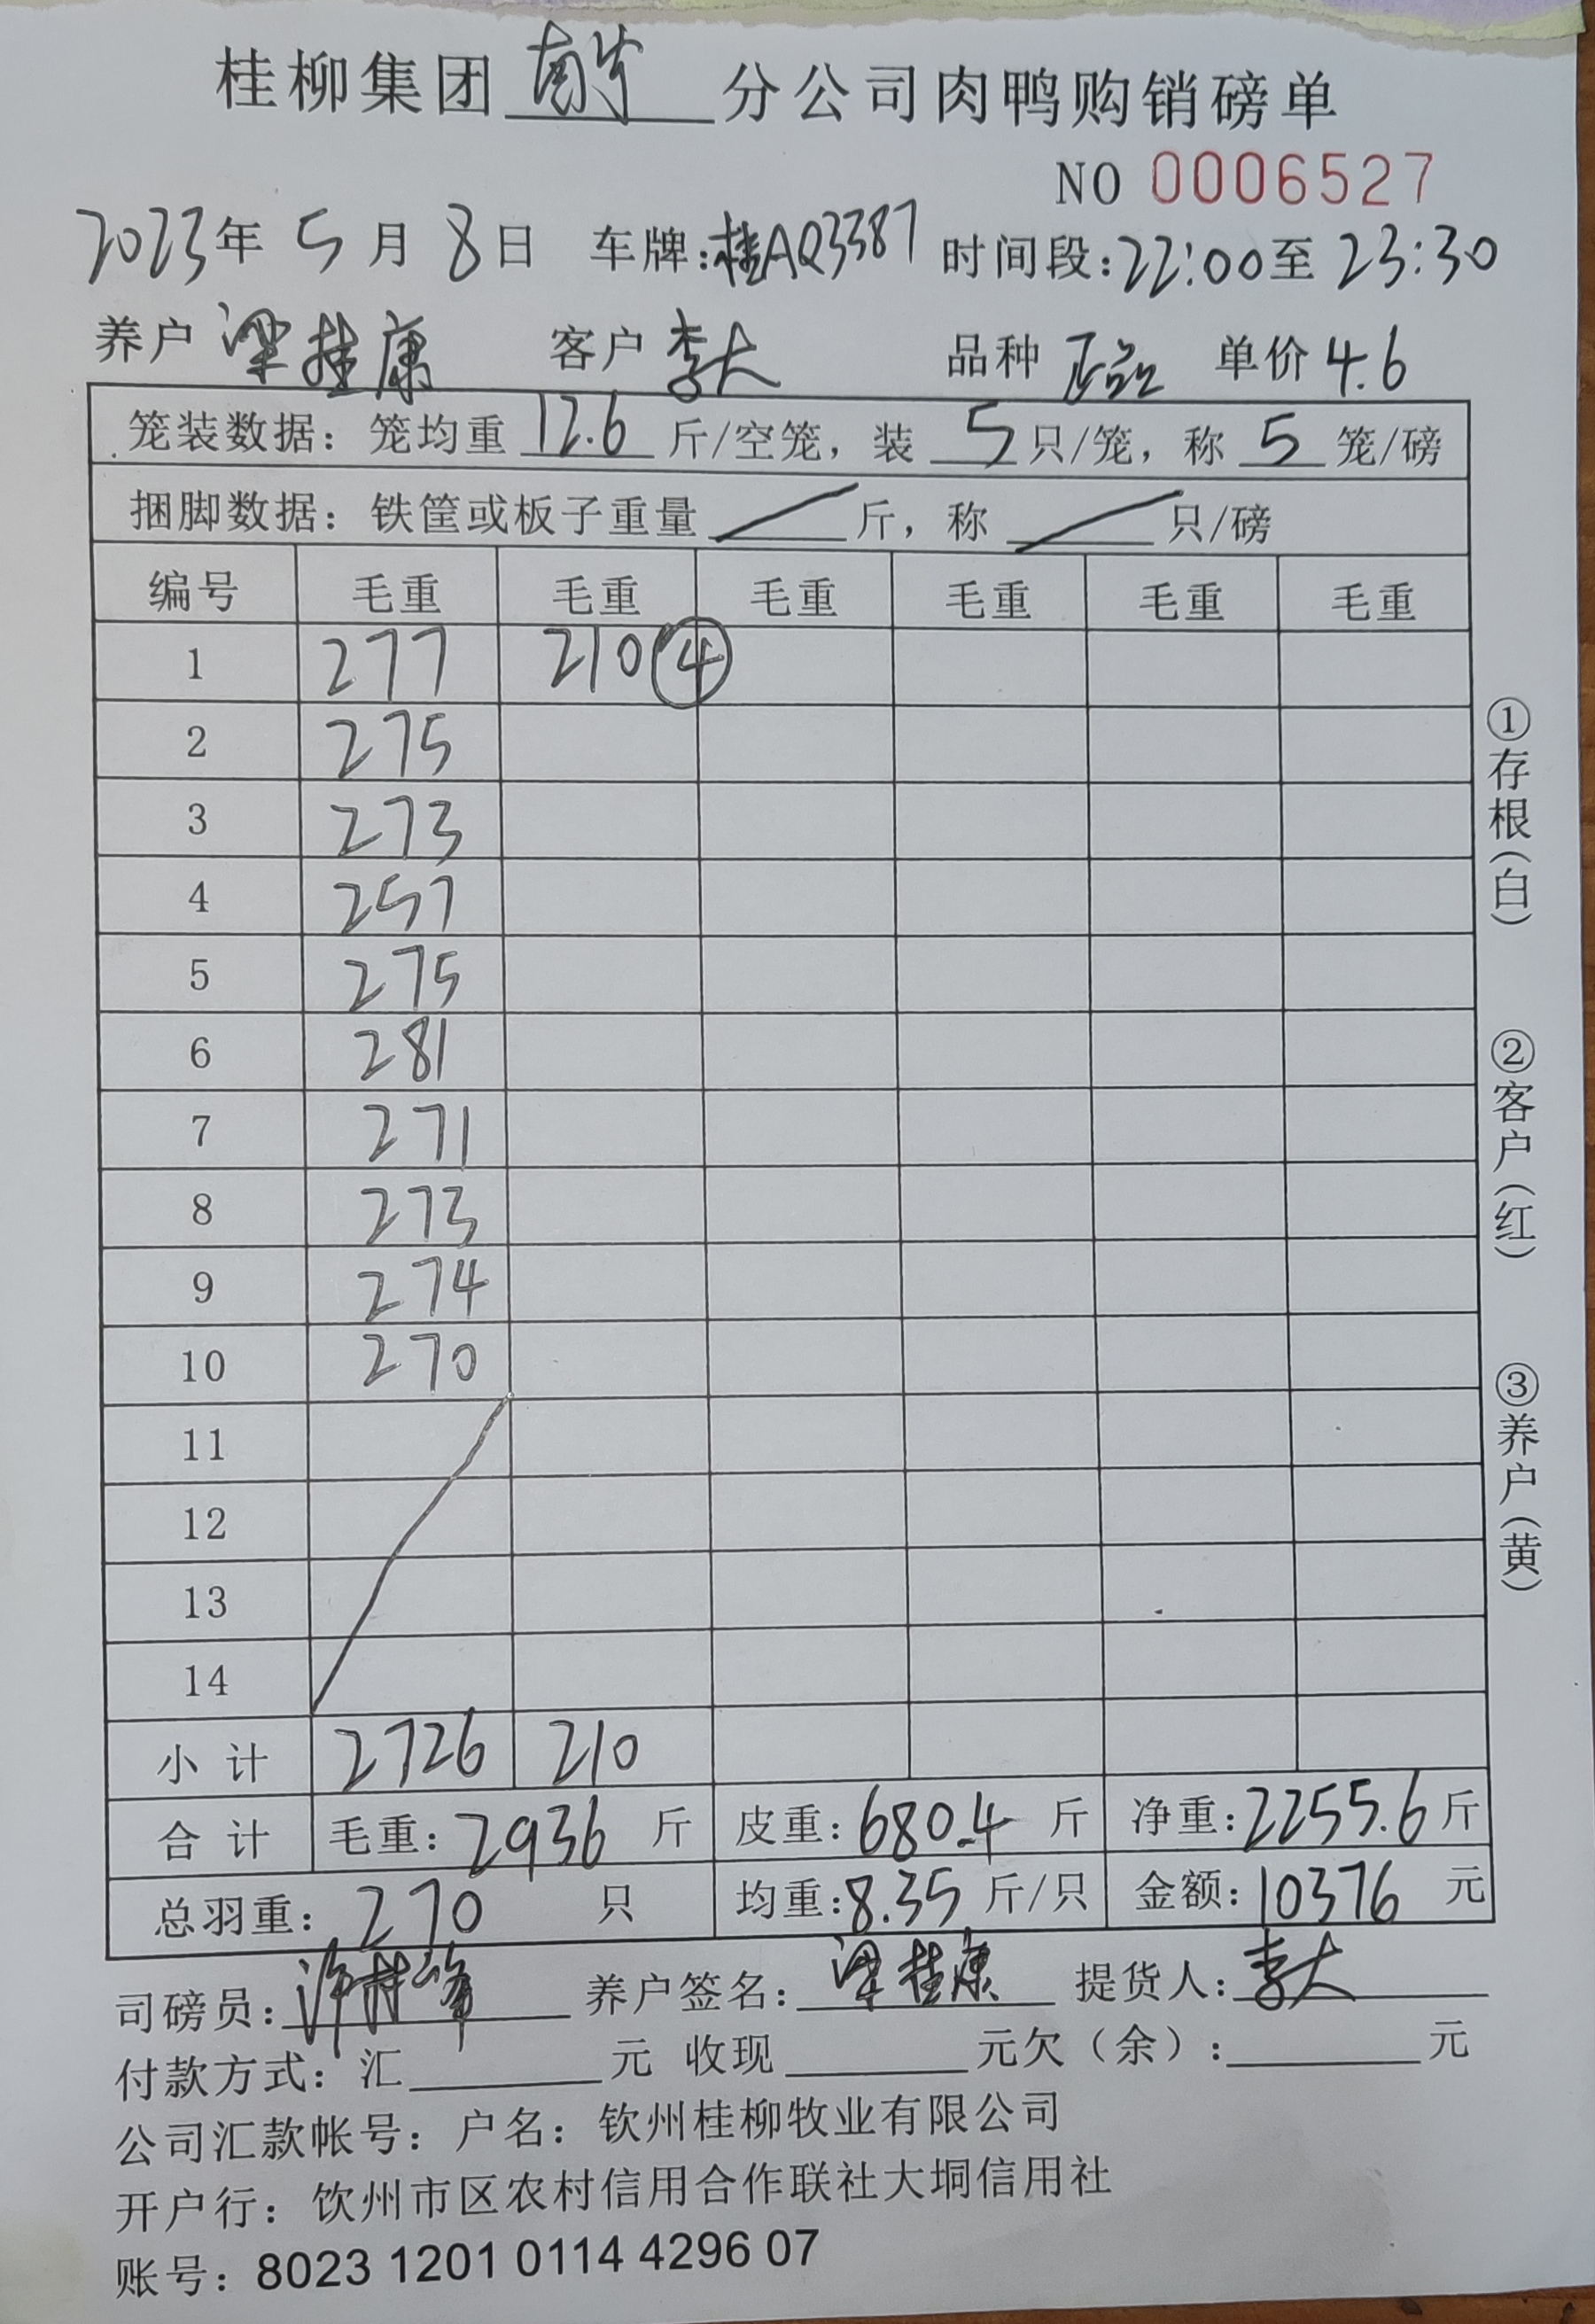 桂柳集团 南宁 分公司肉鸭购销磅单
NO 0006527
2023年 5月 8日 车牌:桂AQ3387 时间段:22:00至 23:30
养户 梁桂康 客户 李大 品种 单价 4.6
笼装数据: 笼均重 12.6 斤/空笼, 装 5 只/笼, 称 5 笼/磅
捆脚数据: 铁筐或板子重量 / 斤, 称 / 只/磅
编号 毛重 毛重 毛重 毛重 毛重 毛重
1 277 210 ④
2 275
3 273
4 257
5 275
6 281
7 271
8 273
9 274
10 270
11
12
13
14
小 计 2726 210
合 计 毛重: 2936 斤 皮重: 680.4 斤 净重: 2255.6 斤
总羽重: 270 只 均重: 8.35 斤/只 金额: 10376 元
司磅员: 养户签名: 梁桂康 提货人: 李大
付款方式: 汇 元 收现 元欠(余): 元
公司汇款帐号: 户名: 钦州桂柳牧业有限公司
开户行: 饮州市区农村信用合作联社大垌信用社
账号: 8023 1201 0114 4296 07
①存根(白)
②客户(红)
③养户(黄)